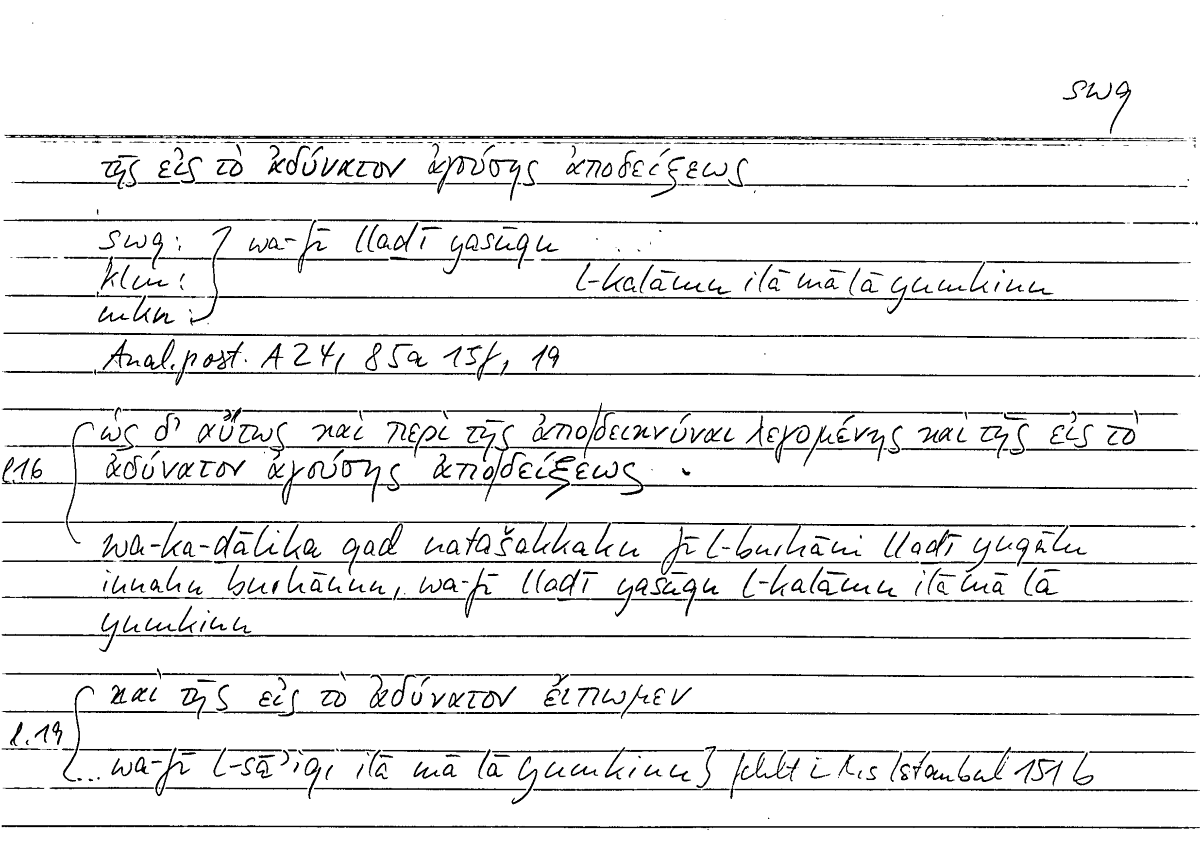 swq
τῆς εἰς τὸ ἀδύνατον ἀγούσης ἀποδείξεως
swq: } wa-fī lladī yasūqu ....
klm: l-kalāmu ilā mā lā yumkinu
mkn:
Anal.post. A 24, 85a 15f, 19
ὡς δ' αὔτως καὶ περὶ τῆς ἀπο/δεικνύναι λεγομένης καὶ τῆς εἰς τὸ
l.16 ἀδύνατον ἀγούσης ἀπο/δείξεως.
wa-ka-dālika qad natašakkaku fī l-burhāni lladī yuqālu
innahu burhānun, wa-fī lladī yasūqu l-kalāmu ilā mā lā
yumkinu
καὶ τῆς εἰς τὸ ἀδύνατον εἴπωμεν
l.19
... wa-fī l-sā'iqi ilā mā lā yumkinu} fehlt i Hs Istanbul 151b